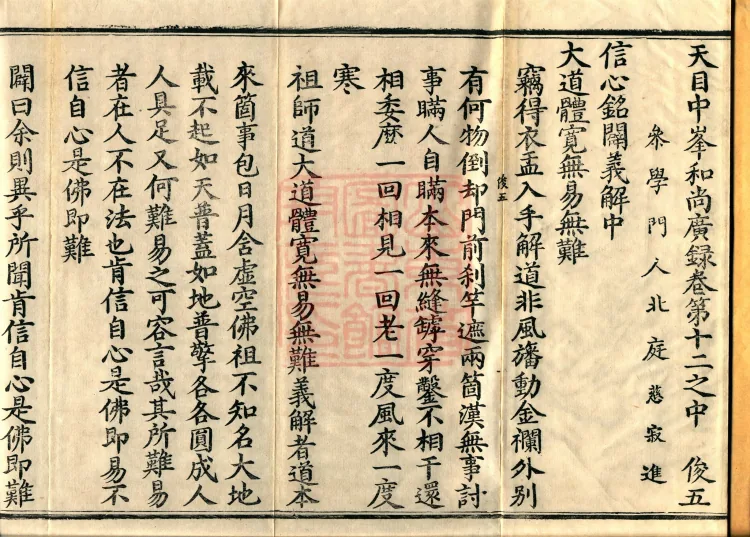 天目中峯和尚廣録卷第十二之中 俊五
叅學門人北庭慈寂進
信心銘闢義解中
大道體寛無易無難
竊得衣盂入手解道非風旛動金襴外别
俊五
有何物倒却門前刹竿遮兩箇漢無事討
事瞞人自瞞本來無縫鏬穿鑿不相干還
相委麽一回相見一回老一度風來一度
寒
祖師道大道體寛無易無難義解者道本
來箇事包日月含虚空佛祖不知名大地
載不起如天普蓋如地普擎各各圓成人
人具足又何難易之可容言哉其所難易
者在人不在法也肯信自心是佛即易不
信自心是佛即難
闢曰余則異乎所聞肯信自心是佛即難